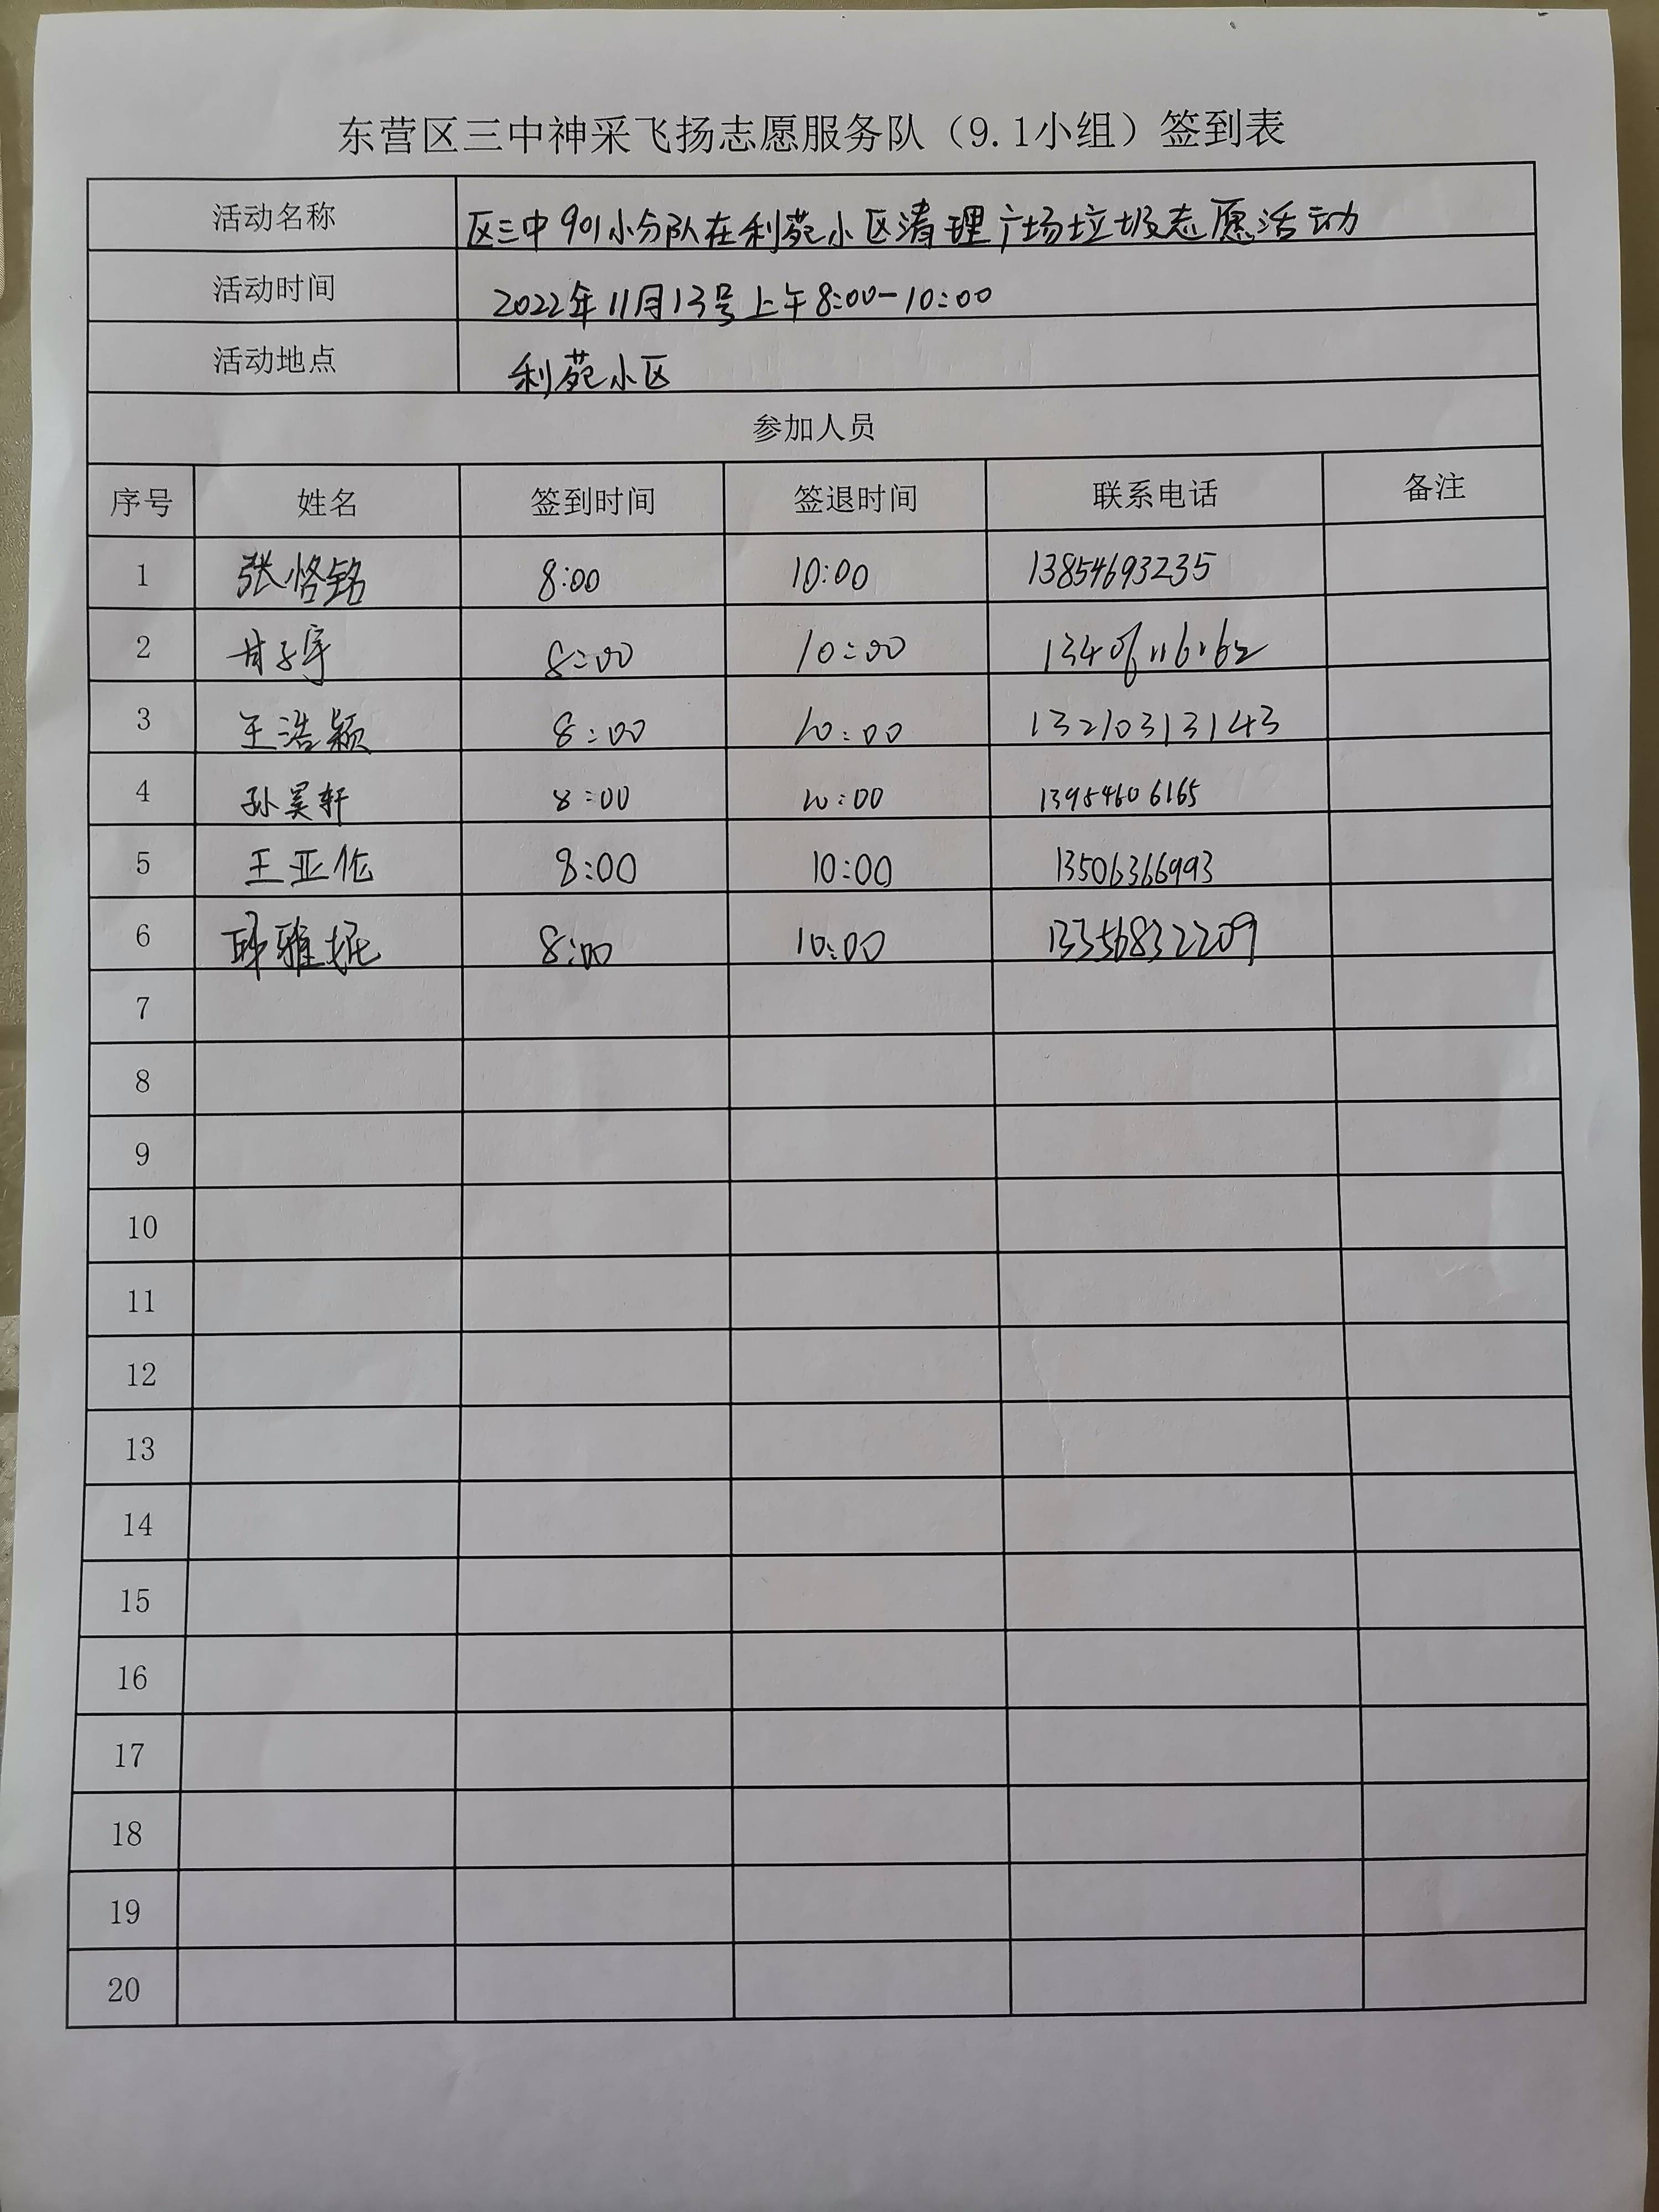 东营区三中神采飞扬志愿服务队（9.1小组）签到表
活动名称 区三中901小分队在利苑小区清理广场垃圾志愿活动
活动时间 2022年11月13号上午8:00-10:00
活动地点 利苑小区
参加人员
序号 姓名 签到时间 签退时间 联系电话 备注
1 张恪铭 8:00 10:00 13854693235
2 甘子宇 8:00 10:00
3 王浩颖 8:00 10:00 13210313143
4 孙昊轩 8:00 10:00 13954606165
5 王亚伦 8:00 10:00 13506366993
6 雅妮 8:00 10:00 13356832209
7
8
9
10
11
12
13
14
15
16
17
18
19
20